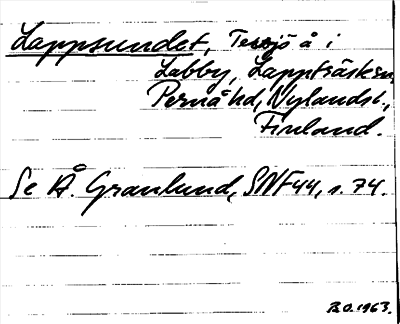 Lappsundet, Tessjö å i
Labby, Lappträsk sn,
Pernå hd, Nylands l.,
Finland.
Se Å. Granlund, SNF 44, s. 74.
B.O. 1963.